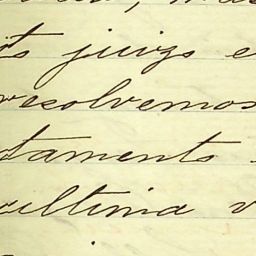 juizo e
resolvemos
tamento
ultima v